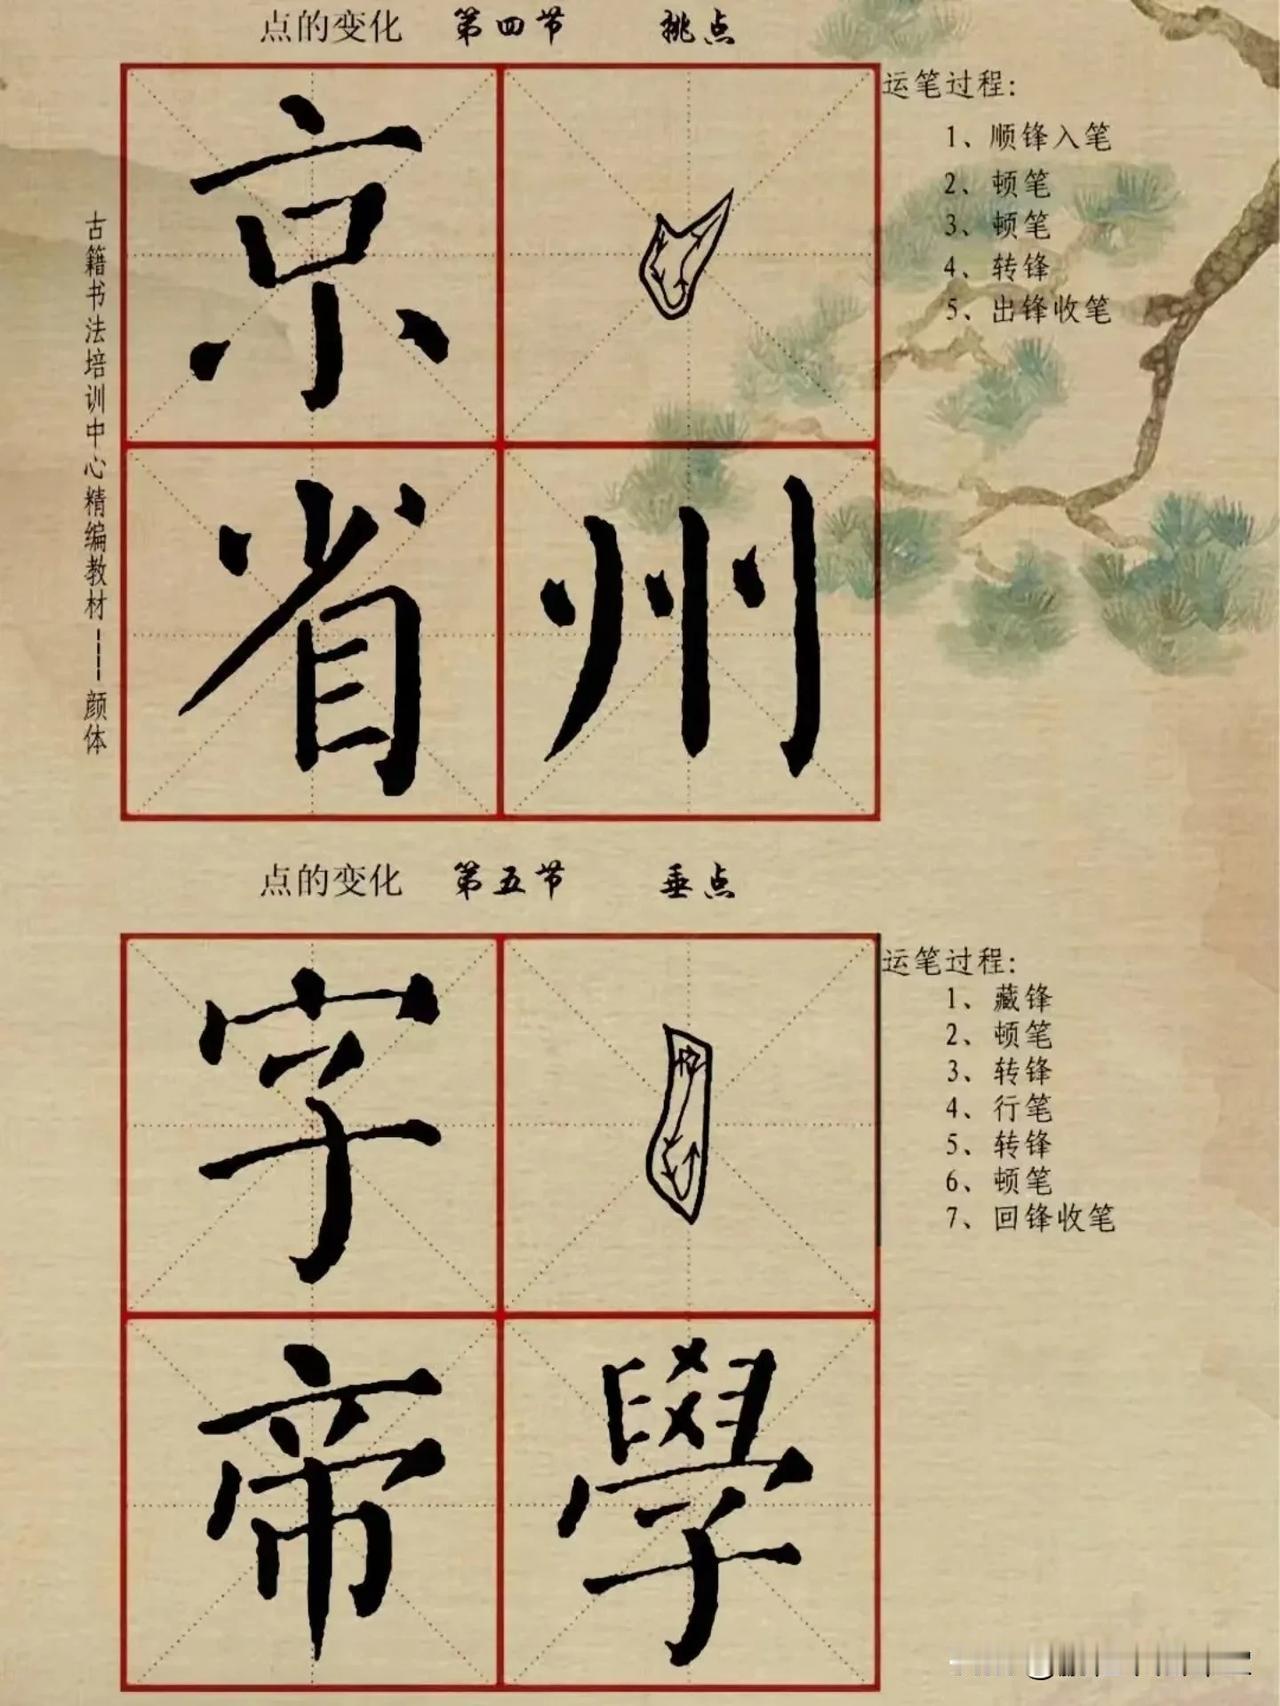 点的变化 第四节 挑点
运笔过程：
1、顺锋入笔
2、顿笔
3、顿笔
4、转锋
5、出锋收笔
京
省 州
古籍书法培训中心精编教材----颜体
点的变化 第五节 垂点
运笔过程：
1、藏锋
2、顿笔
3、转锋
4、行笔
5、转锋
6、顿笔
7、回锋收笔
字
帝 學